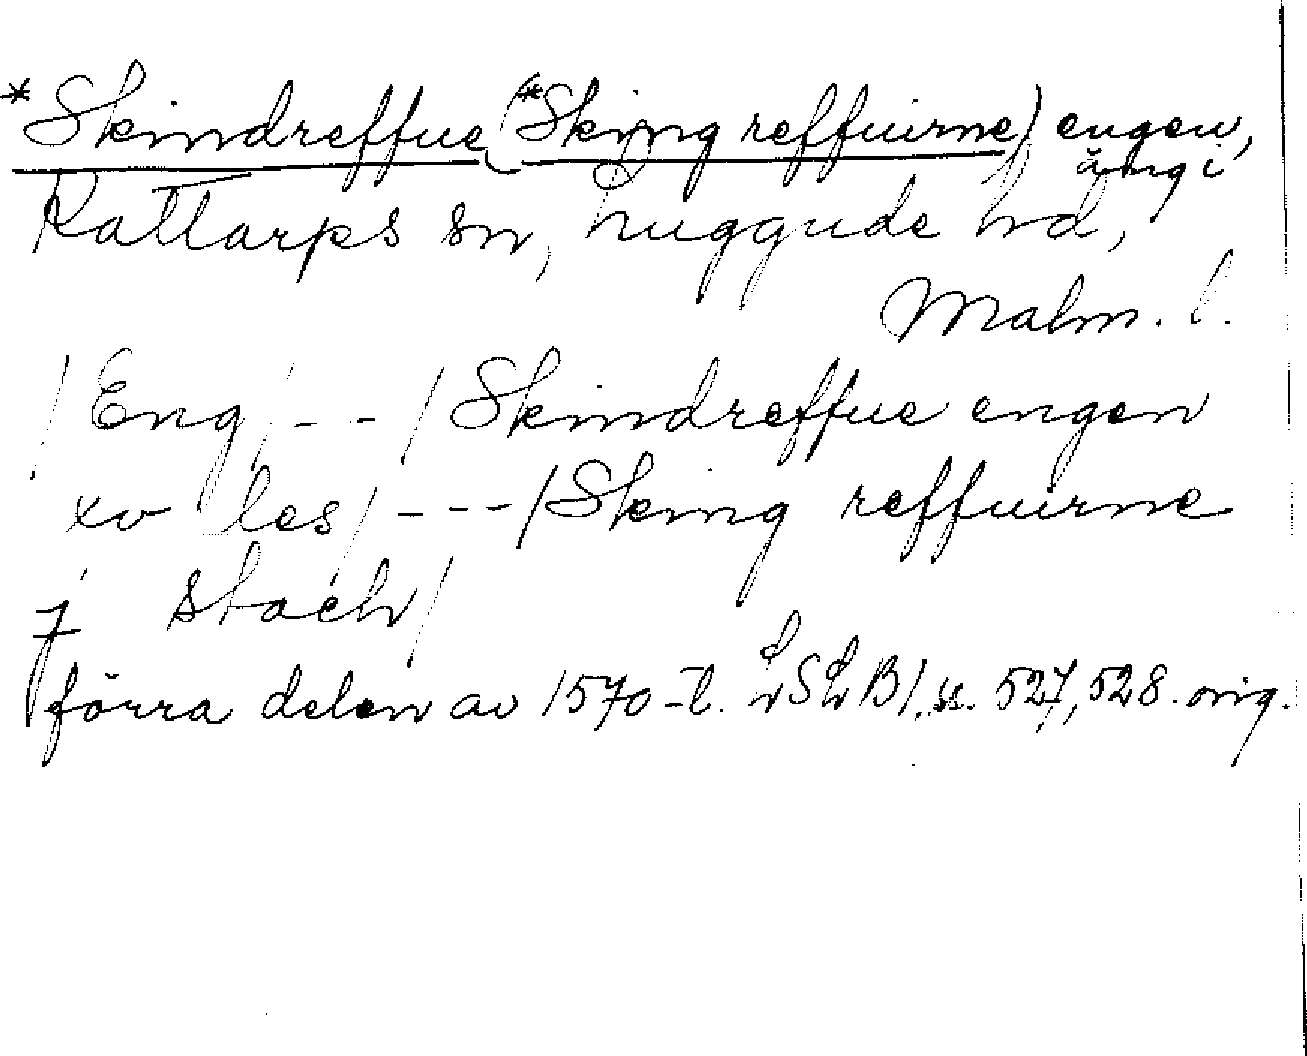 *Skindreffue (*Sking reffuirne) engen,
äng i
Kattarps sn, Luggude hd,
Malm. l.
/Eng/ - - /Skindreffue engen
xv les/ - - - /Sking reffuirne
j stach/
förra delen av 1570-t. LSLB1, ss. 527, 528. orig.